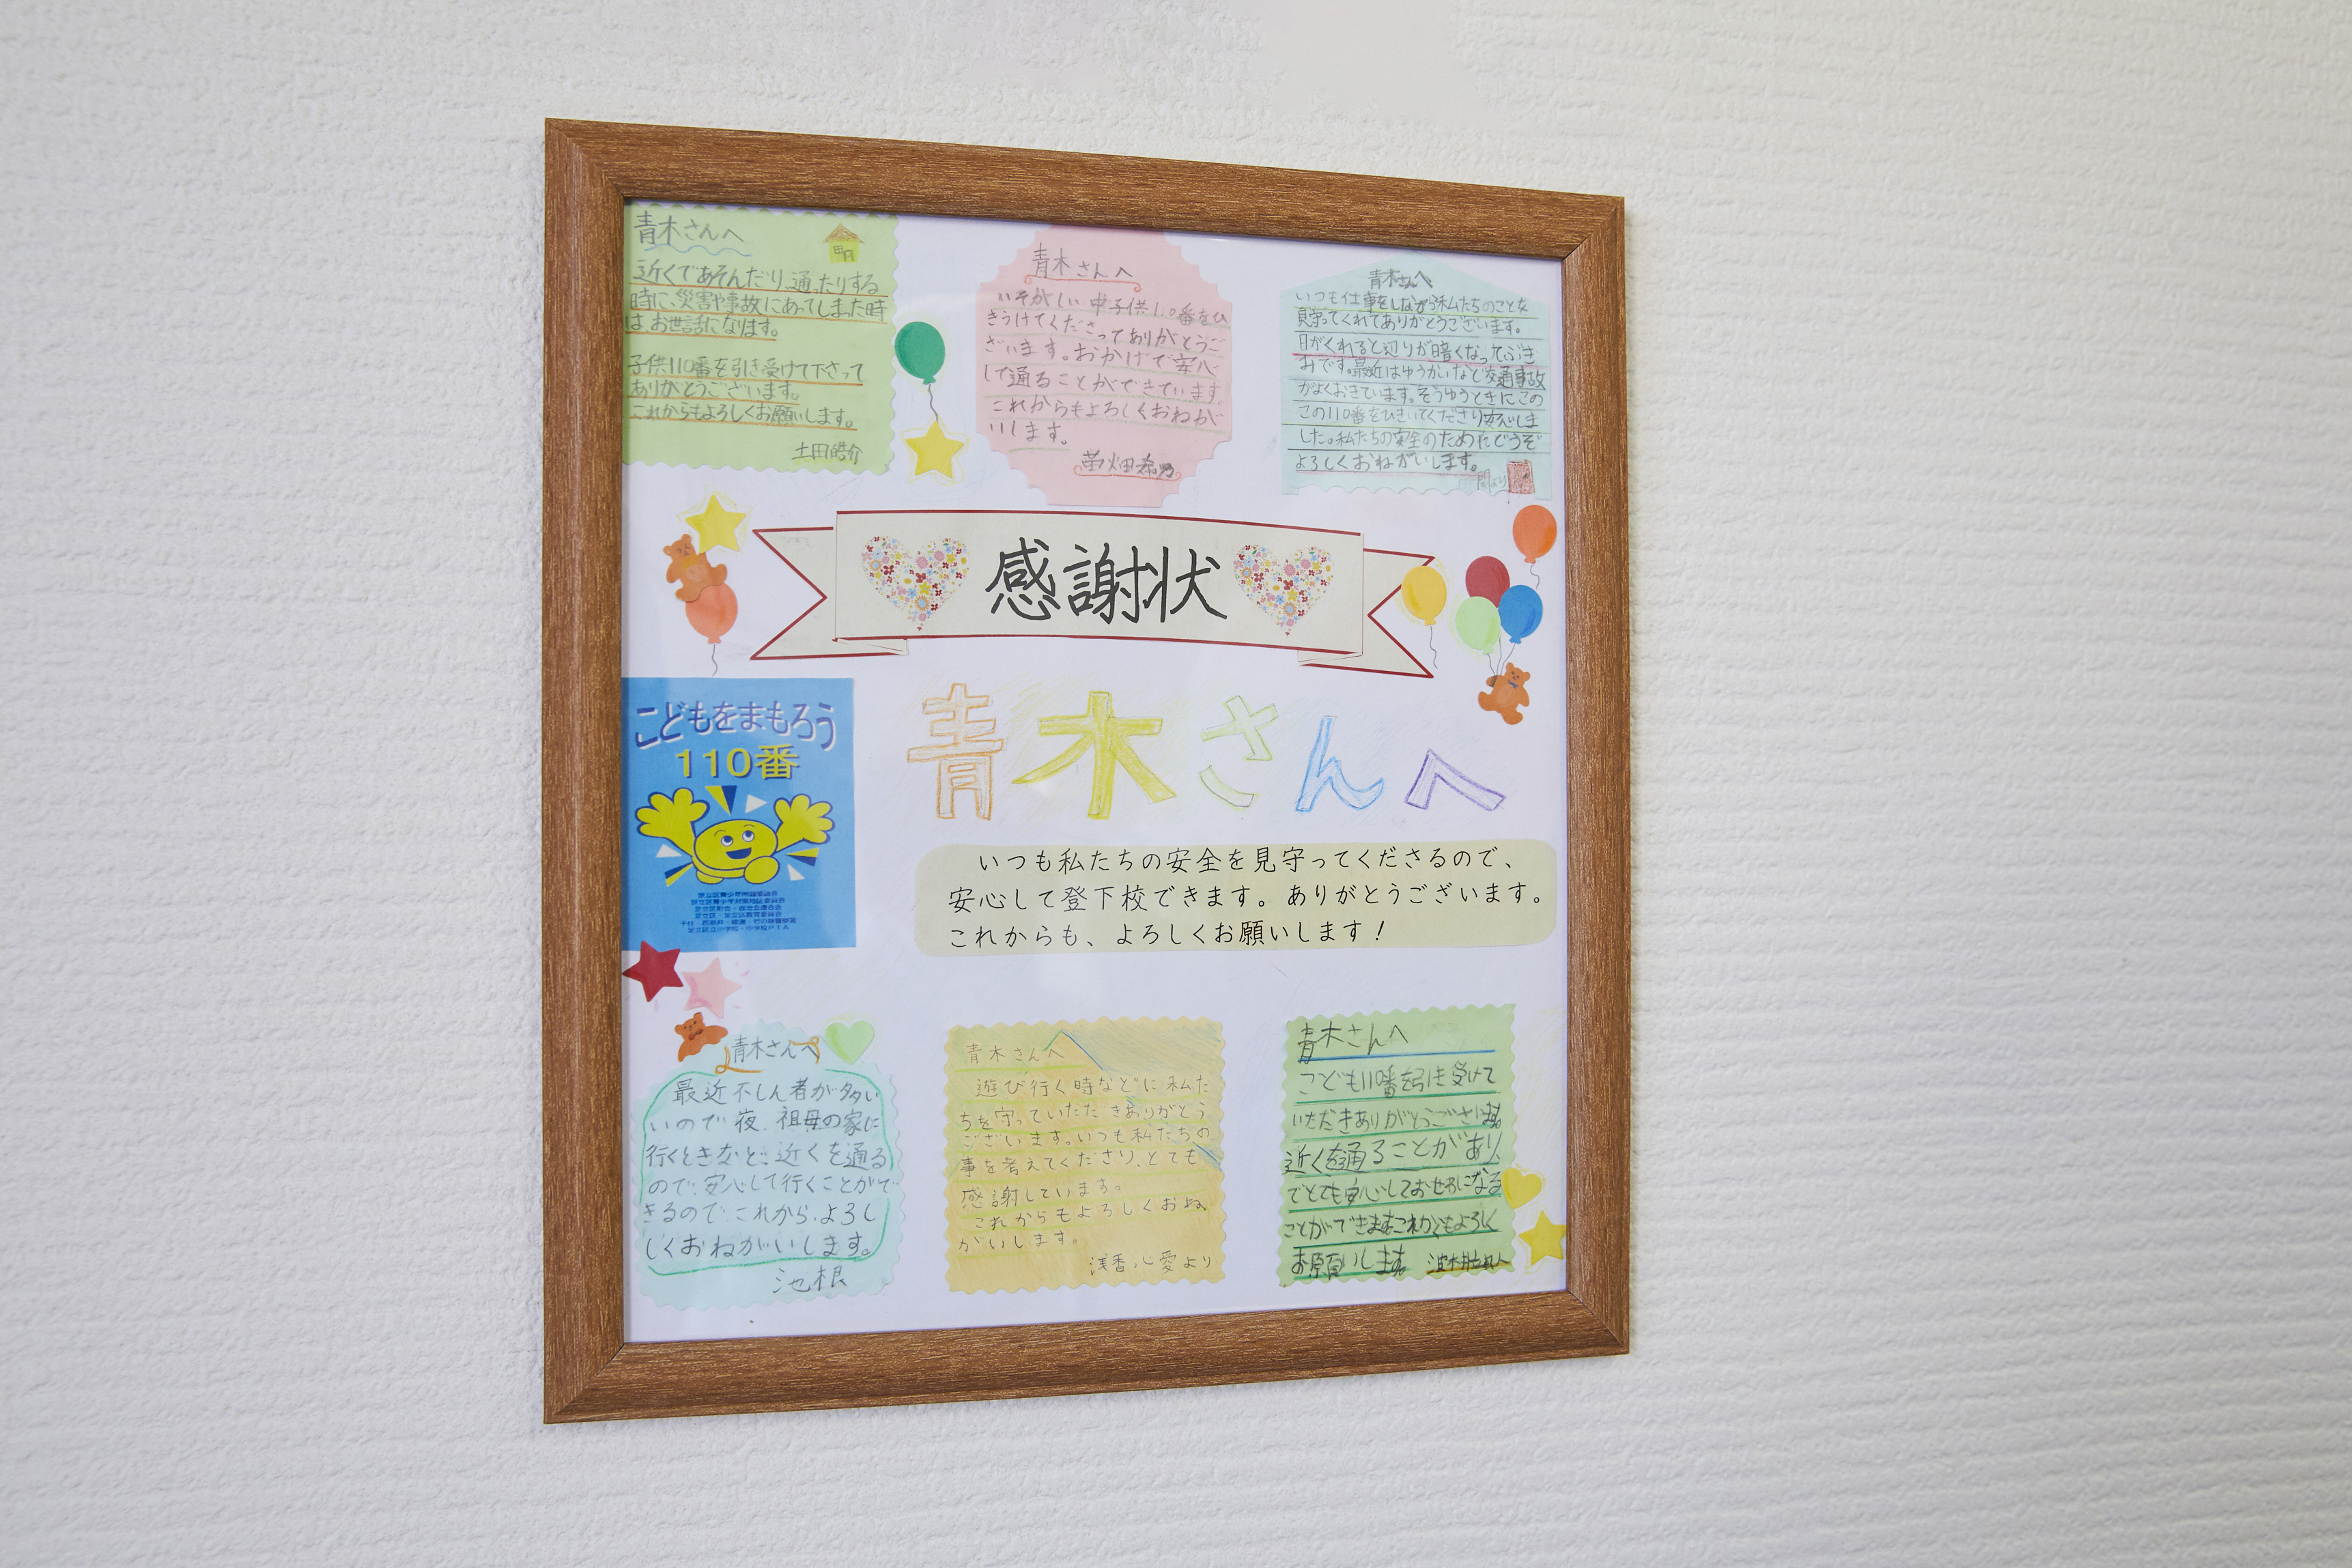 青木さんへ
近くであそんだり、通ったりする
時に、災害や事故にあってしまった時
は お世話になります。
子供110番を引き受けて下さって
ありがとうございます。
これからもよろしくお願いします。
土田皓介
青木さんへ
いそがしい中子供110番をひ
きうけてくださってありがとうご
ざいます。おかげで安心
して通ることができています
これからもよろしくおねが
いします。
青木さんへ
いつも仕事をしながら私たちのことを
見守ってくれてありがとうございます。
日がくれると辺りが暗くなってぶき
みです。最近はゆうかいなど交通事故
がよくおきています。そうゆうときにこの
この110番をひきいてくださり安心しま
した。私たちの安全のためにどうぞ
よろしくおねがいします。
より
感謝状
こどもをまもろう
110番
青木さんへ
いつも私たちの安全を見守ってくださるので、
安心して登下校できます。ありがとうございます。
これからも、よろしくお願いします！
青木さんへ
最近不しん者が多い
いので夜、祖母の家に
行くときなど、近くを通る
ので、安心して行くことがで
きるので、これから、よろし
しくおねがいします。
池根
青木さんへ
遊び行く時などに私た
ちを守っていただきありがとう
ございます。いつも私たちの
事を考えてくださり、とても
感謝しています。
これからもよろしくおね
がいします。
浅香心愛より
青木さんへ
こども110番を引き受けて
いただきありがとうございます。
近くを通ることがあり、
でとても安心しておせわになる
ことができますこれからもよろしく
お願いします。